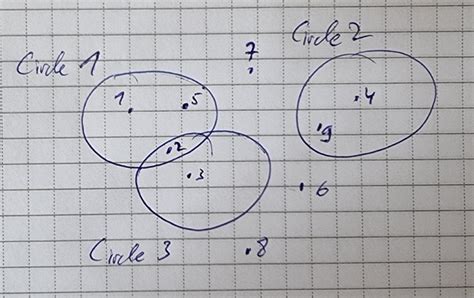 Circle 2
7
Circle 1
1
5
4
9
2
3
6
Circle 3
8